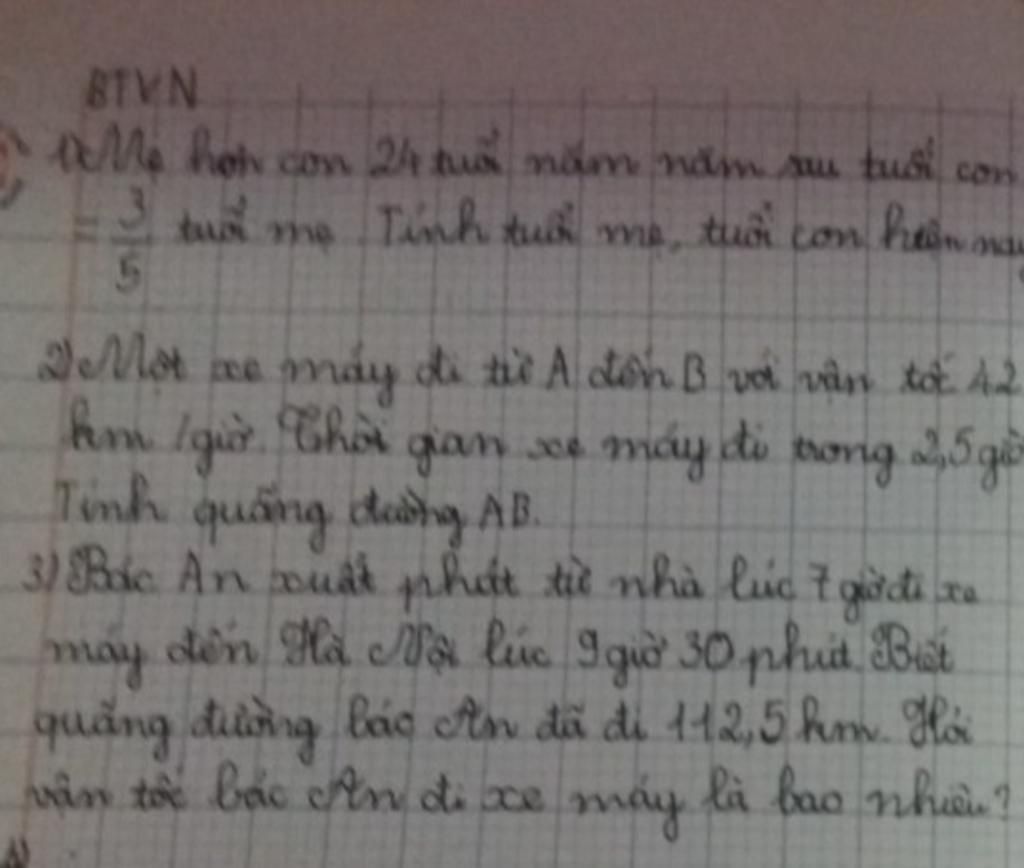 BTVN
1) Mẹ hơn con 24 tuổi năm năm sau tuổi con
= 3/5 tuổi mẹ. Tính tuổi mẹ, tuổi con hiện nay
2) Một xe máy đi từ A đến B với vận tốc 42
km/giờ. Thời gian xe máy đi trong 2,5 giờ
Tính quãng đường AB.
3) Bác An xuất phát từ nhà lúc 7 giờ đi xe
máy đến Hà Nội lúc 9 giờ 30 phút. Biết
quãng đường bác An đã đi 112,5 km. Hỏi
vận tốc bác An đi xe máy là bao nhiêu?